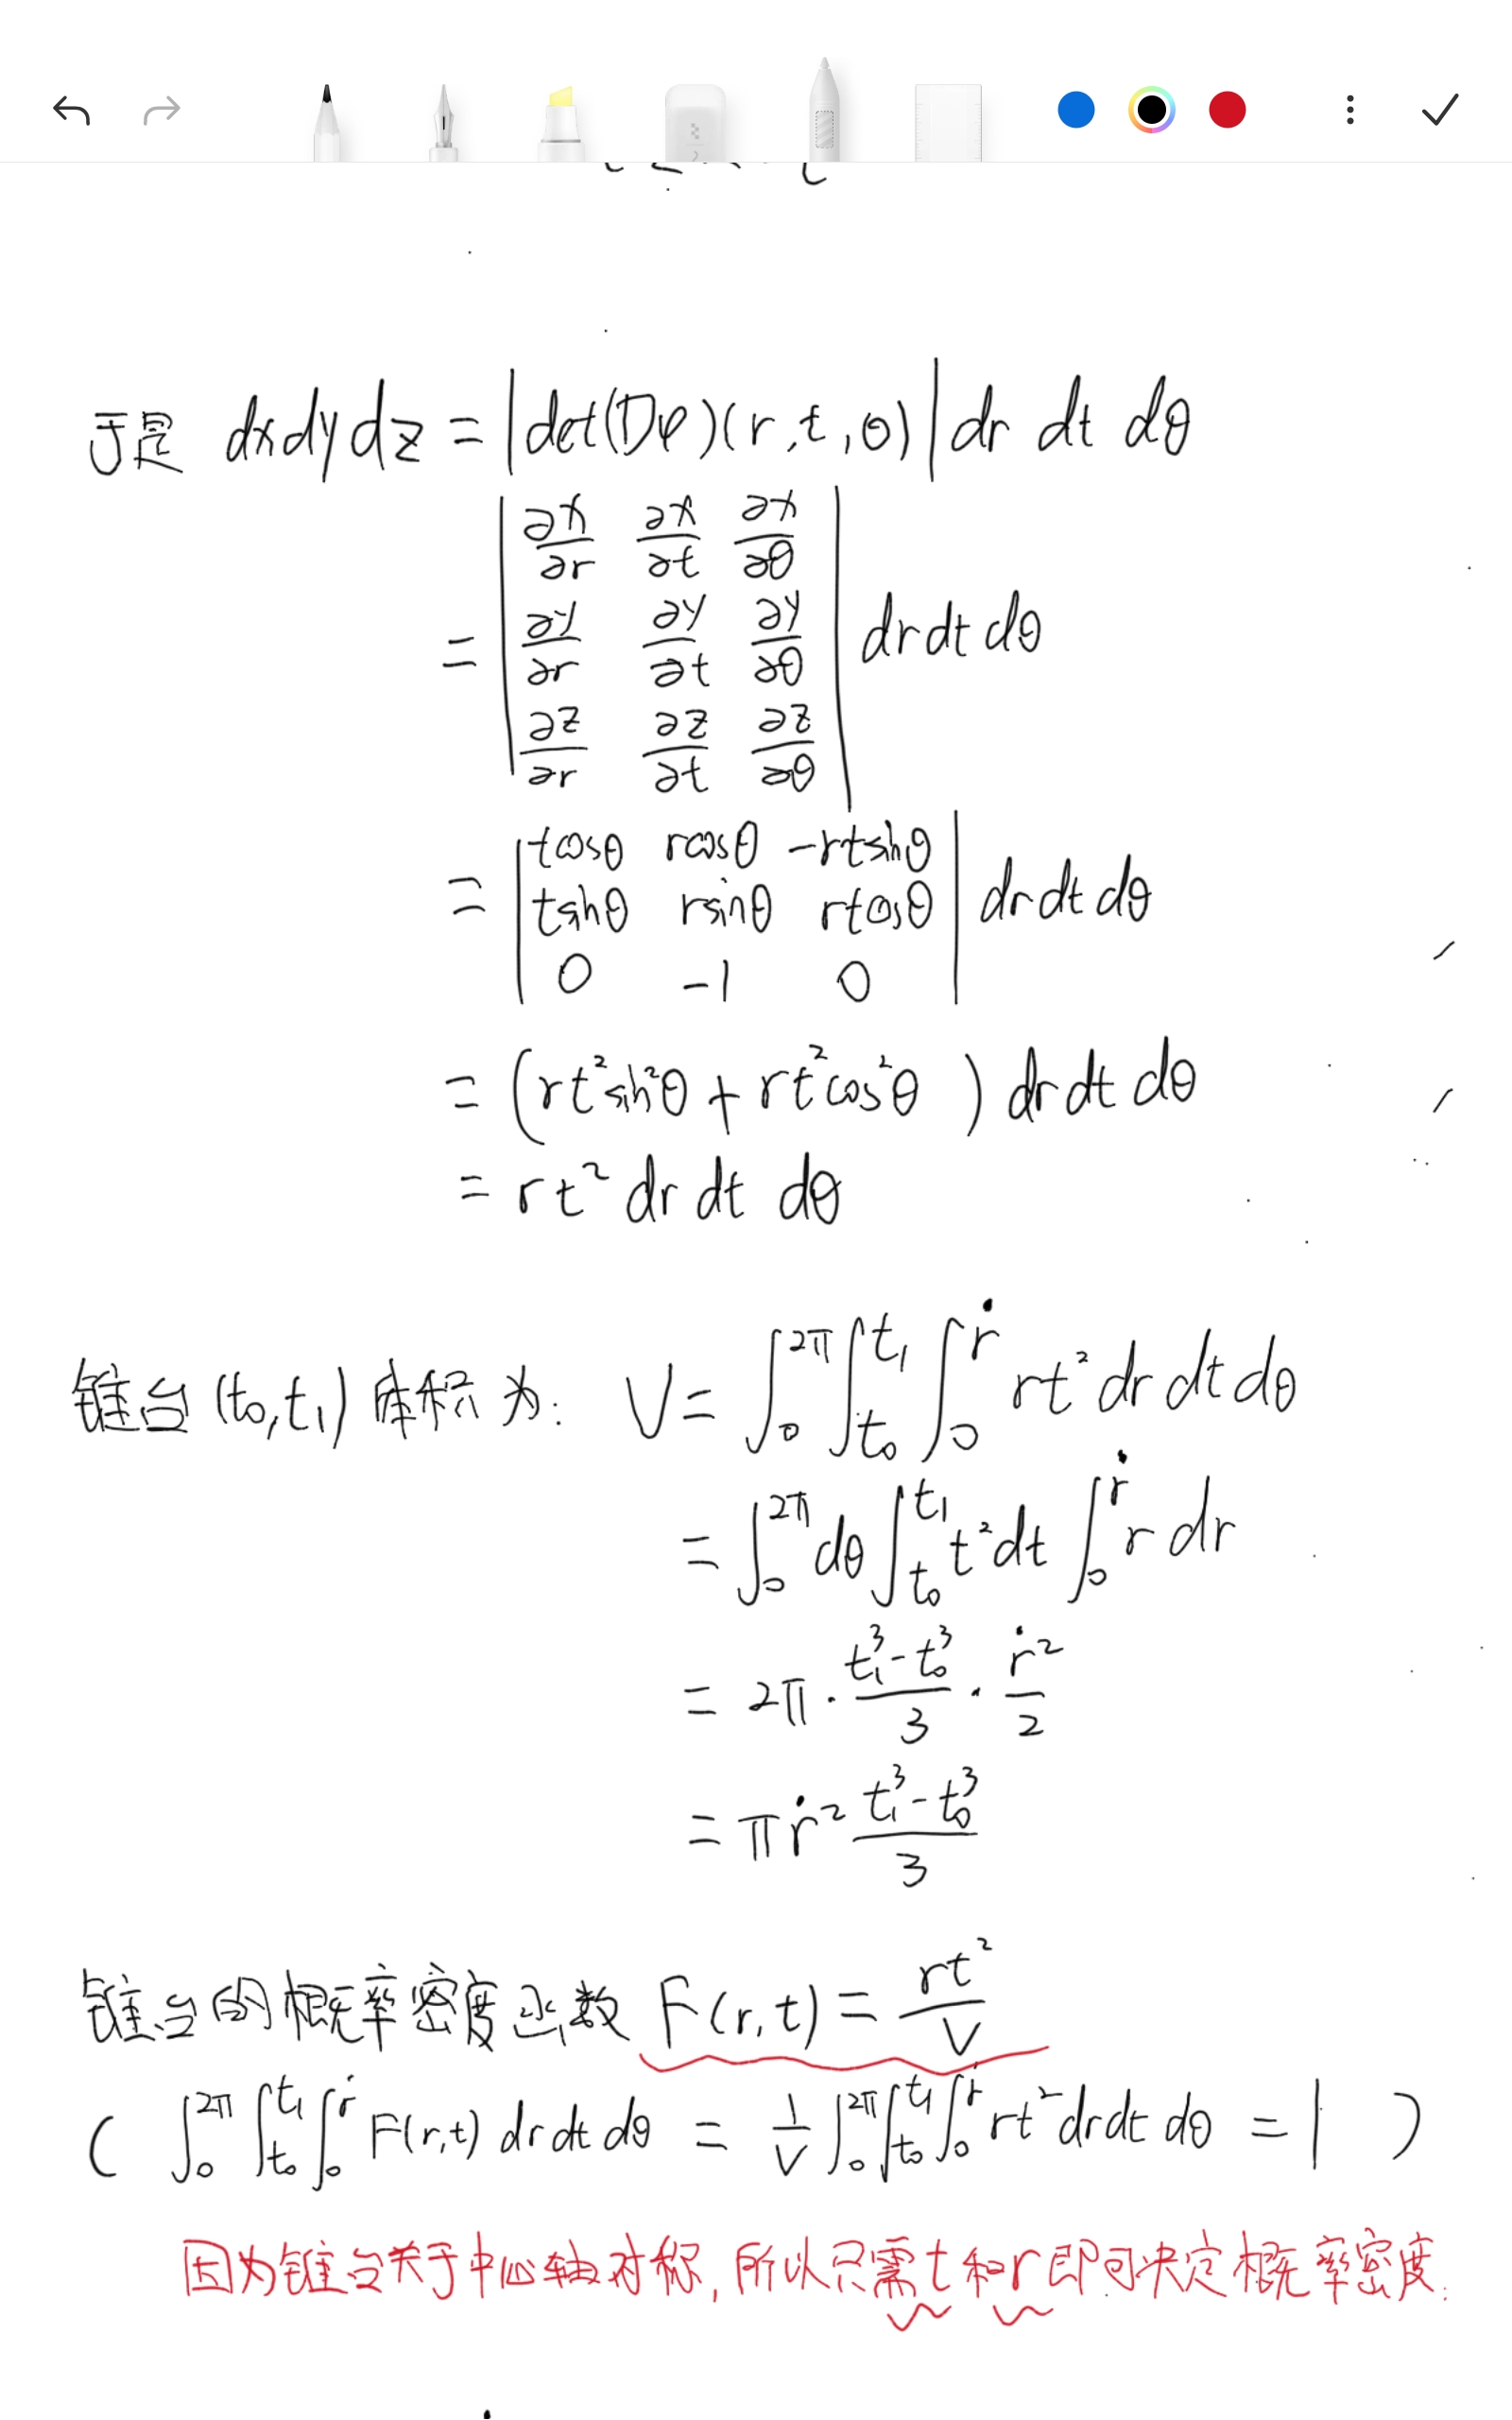 于是 dxdydz = |det(Dφ)(r,t,θ)| dr dt dθ
= | ∂x/∂r ∂x/∂t ∂x/∂θ
∂y/∂r ∂y/∂t ∂y/∂θ
∂z/∂r ∂z/∂t ∂z/∂θ | drdtdθ
= | tcosθ rcosθ -rtsinθ
tsinθ rsinθ rtcosθ
0 -1 0 | drdtdθ
= (rt²sin²θ + rt²cos²θ) drdtdθ
= rt² dr dt dθ
锥台(t₀,t₁)体积为: V = ∫₀^2π ∫_t₀^t₁ ∫₀^ṙ rt² dr dt dθ
= ∫₀^2π dθ ∫_t₀^t₁ t²dt ∫₀^ṙ r dr
= 2π · (t₁³-t₀³)/3 · ṙ²/2
= πṙ² (t₁³-t₀³)/3
锥台的概率密度函数 F(r,t) = rt²/V
( ∫₀^2π ∫_t₀^t₁ ∫₀^ṙ F(r,t) dr dt dθ = 1/V ∫₀^2π ∫_t₀^t₁ ∫₀^ṙ rt² dr dt dθ = 1 )
因为锥台关于中心轴对称,所以只需t和r即可决定概率密度.